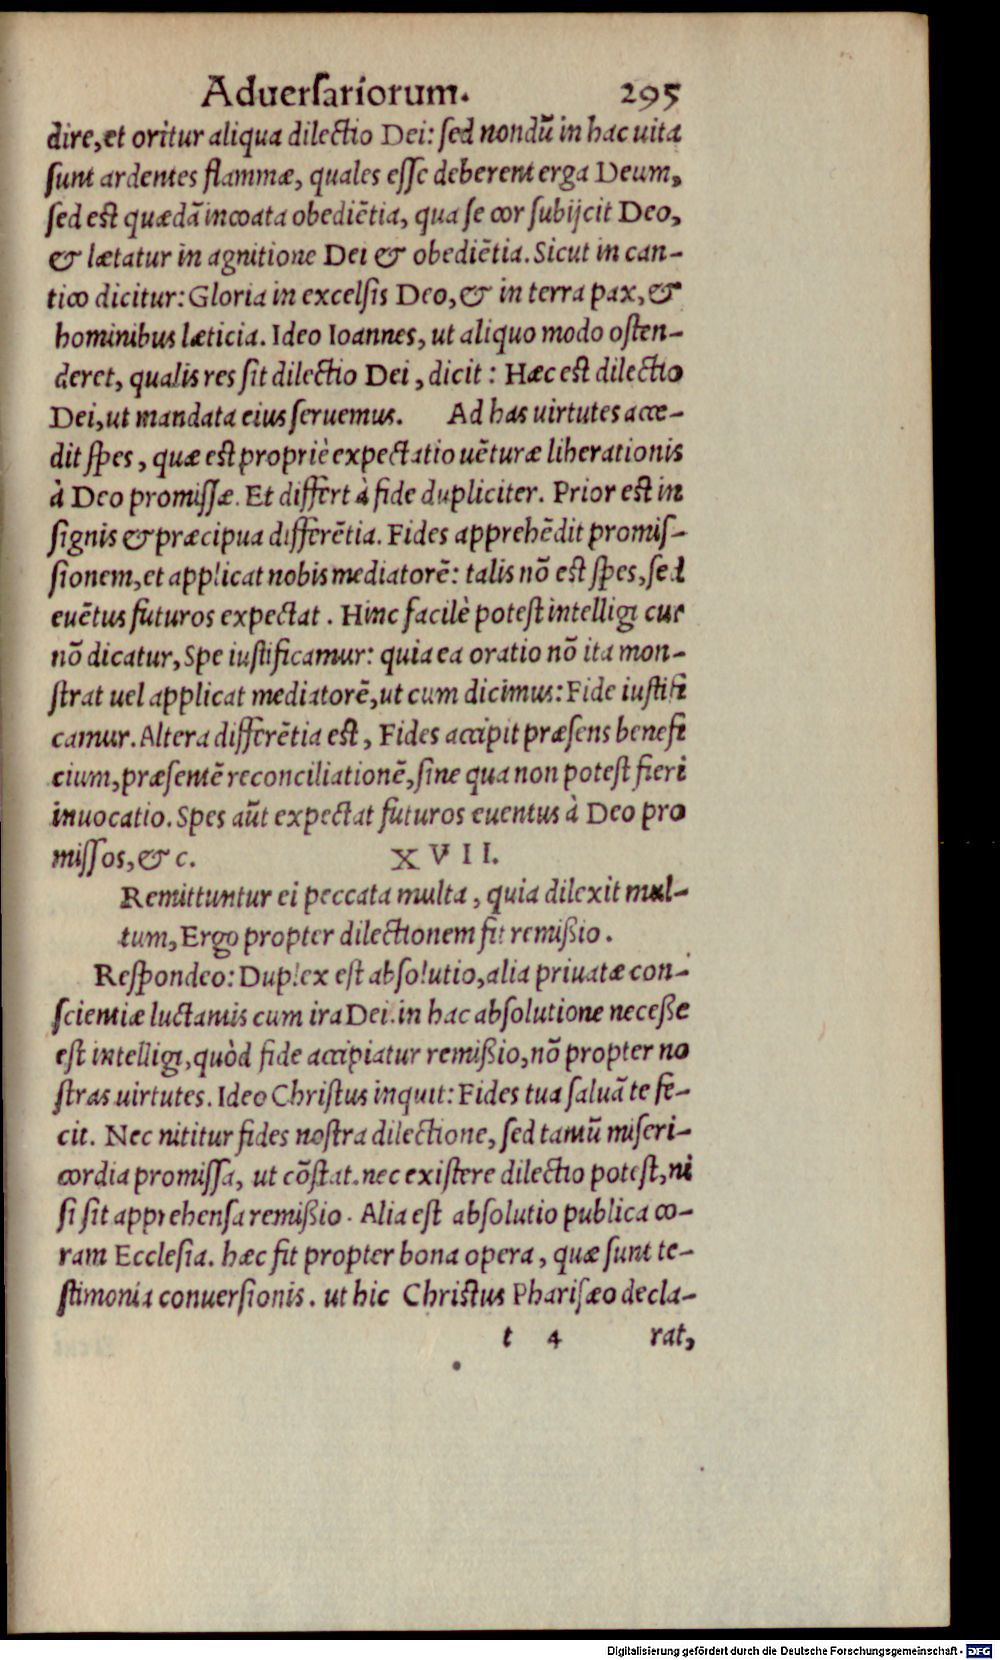 Aduerſariorum. 295
dire, et oritur aliqua dilectio Dei: ſed nondũ in hac uita
ſunt ardentes flammæ, quales eſſe deberent erga Deum,
ſed eſt quædã incoata obediẽtia, qua ſe cor ſubijcit Deo,
& lætatur in agnitione Dei & obediẽtia. Sicut in can-
tico dicitur: Gloria in excelſis Deo, & in terra pax, &
hominibus læticia. Ideo Ioannes, ut aliquo modo oſten-
deret, qualis res ſit dilectio Dei, dicit: Hæc eſt dilectio
Dei, ut mandata eius ſeruemus. Ad has uirtutes acce-
dit ſpes, quæ eſt propriè expectatio uẽturæ liberationis
à Deo promiſſæ. Et differt à fide dupliciter. Prior eſt in
ſignis & præcipua differẽtia. Fides apprehẽdit promiſ-
ſionem, et applicat nobis mediatorẽ: talis nõ eſt ſpes, ſed
euẽtus futuros expectat. Hinc facilè poteſt intelligi cur
nõ dicatur, Spe iuſtificamur: quia ea oratio nõ ita mon-
ſtrat uel applicat mediatorẽ, ut cum dicimus: Fide iuſtifi
camur. Altera differẽtia eſt, Fides accipit præſens benefi
cium, præſentẽ reconciliationẽ, ſine qua non poteſt fieri
inuocatio. Spes aũt expectat futuros euentus à Deo pro
miſſos, & c. XVII.
Remittuntur ei peccata multa, quia dilexit mul-
tum, Ergo propter dilectionem fit remißio.
Reſpondeo: Duplex eſt abſolutio, alia priuatæ con-
ſcientiæ luctantis cum ira Dei. in hac abſolutione neceße
eſt intelligi, quòd fide accipiatur remißio, nõ propter no
ſtras uirtutes. Ideo Chriſtus inquit: Fides tua ſaluã te fe-
cit. Nec nititur fides noſtra dilectione, ſed tantũ miſeri-
cordia promiſſa, ut cõſtat. nec exiſtere dilectio poteſt, ni
ſi ſit apprehenſa remißio. Alia eſt abſolutio publica co-
ram Eccleſia. hæc fit propter bona opera, quæ ſunt te-
ſtimonia conuerſionis. ut hic Chriſtus Phariſæo decla-
t 4 rat,
Digitalisierung gefördert durch die Deutsche Forschungsgemeinschaft - DFG